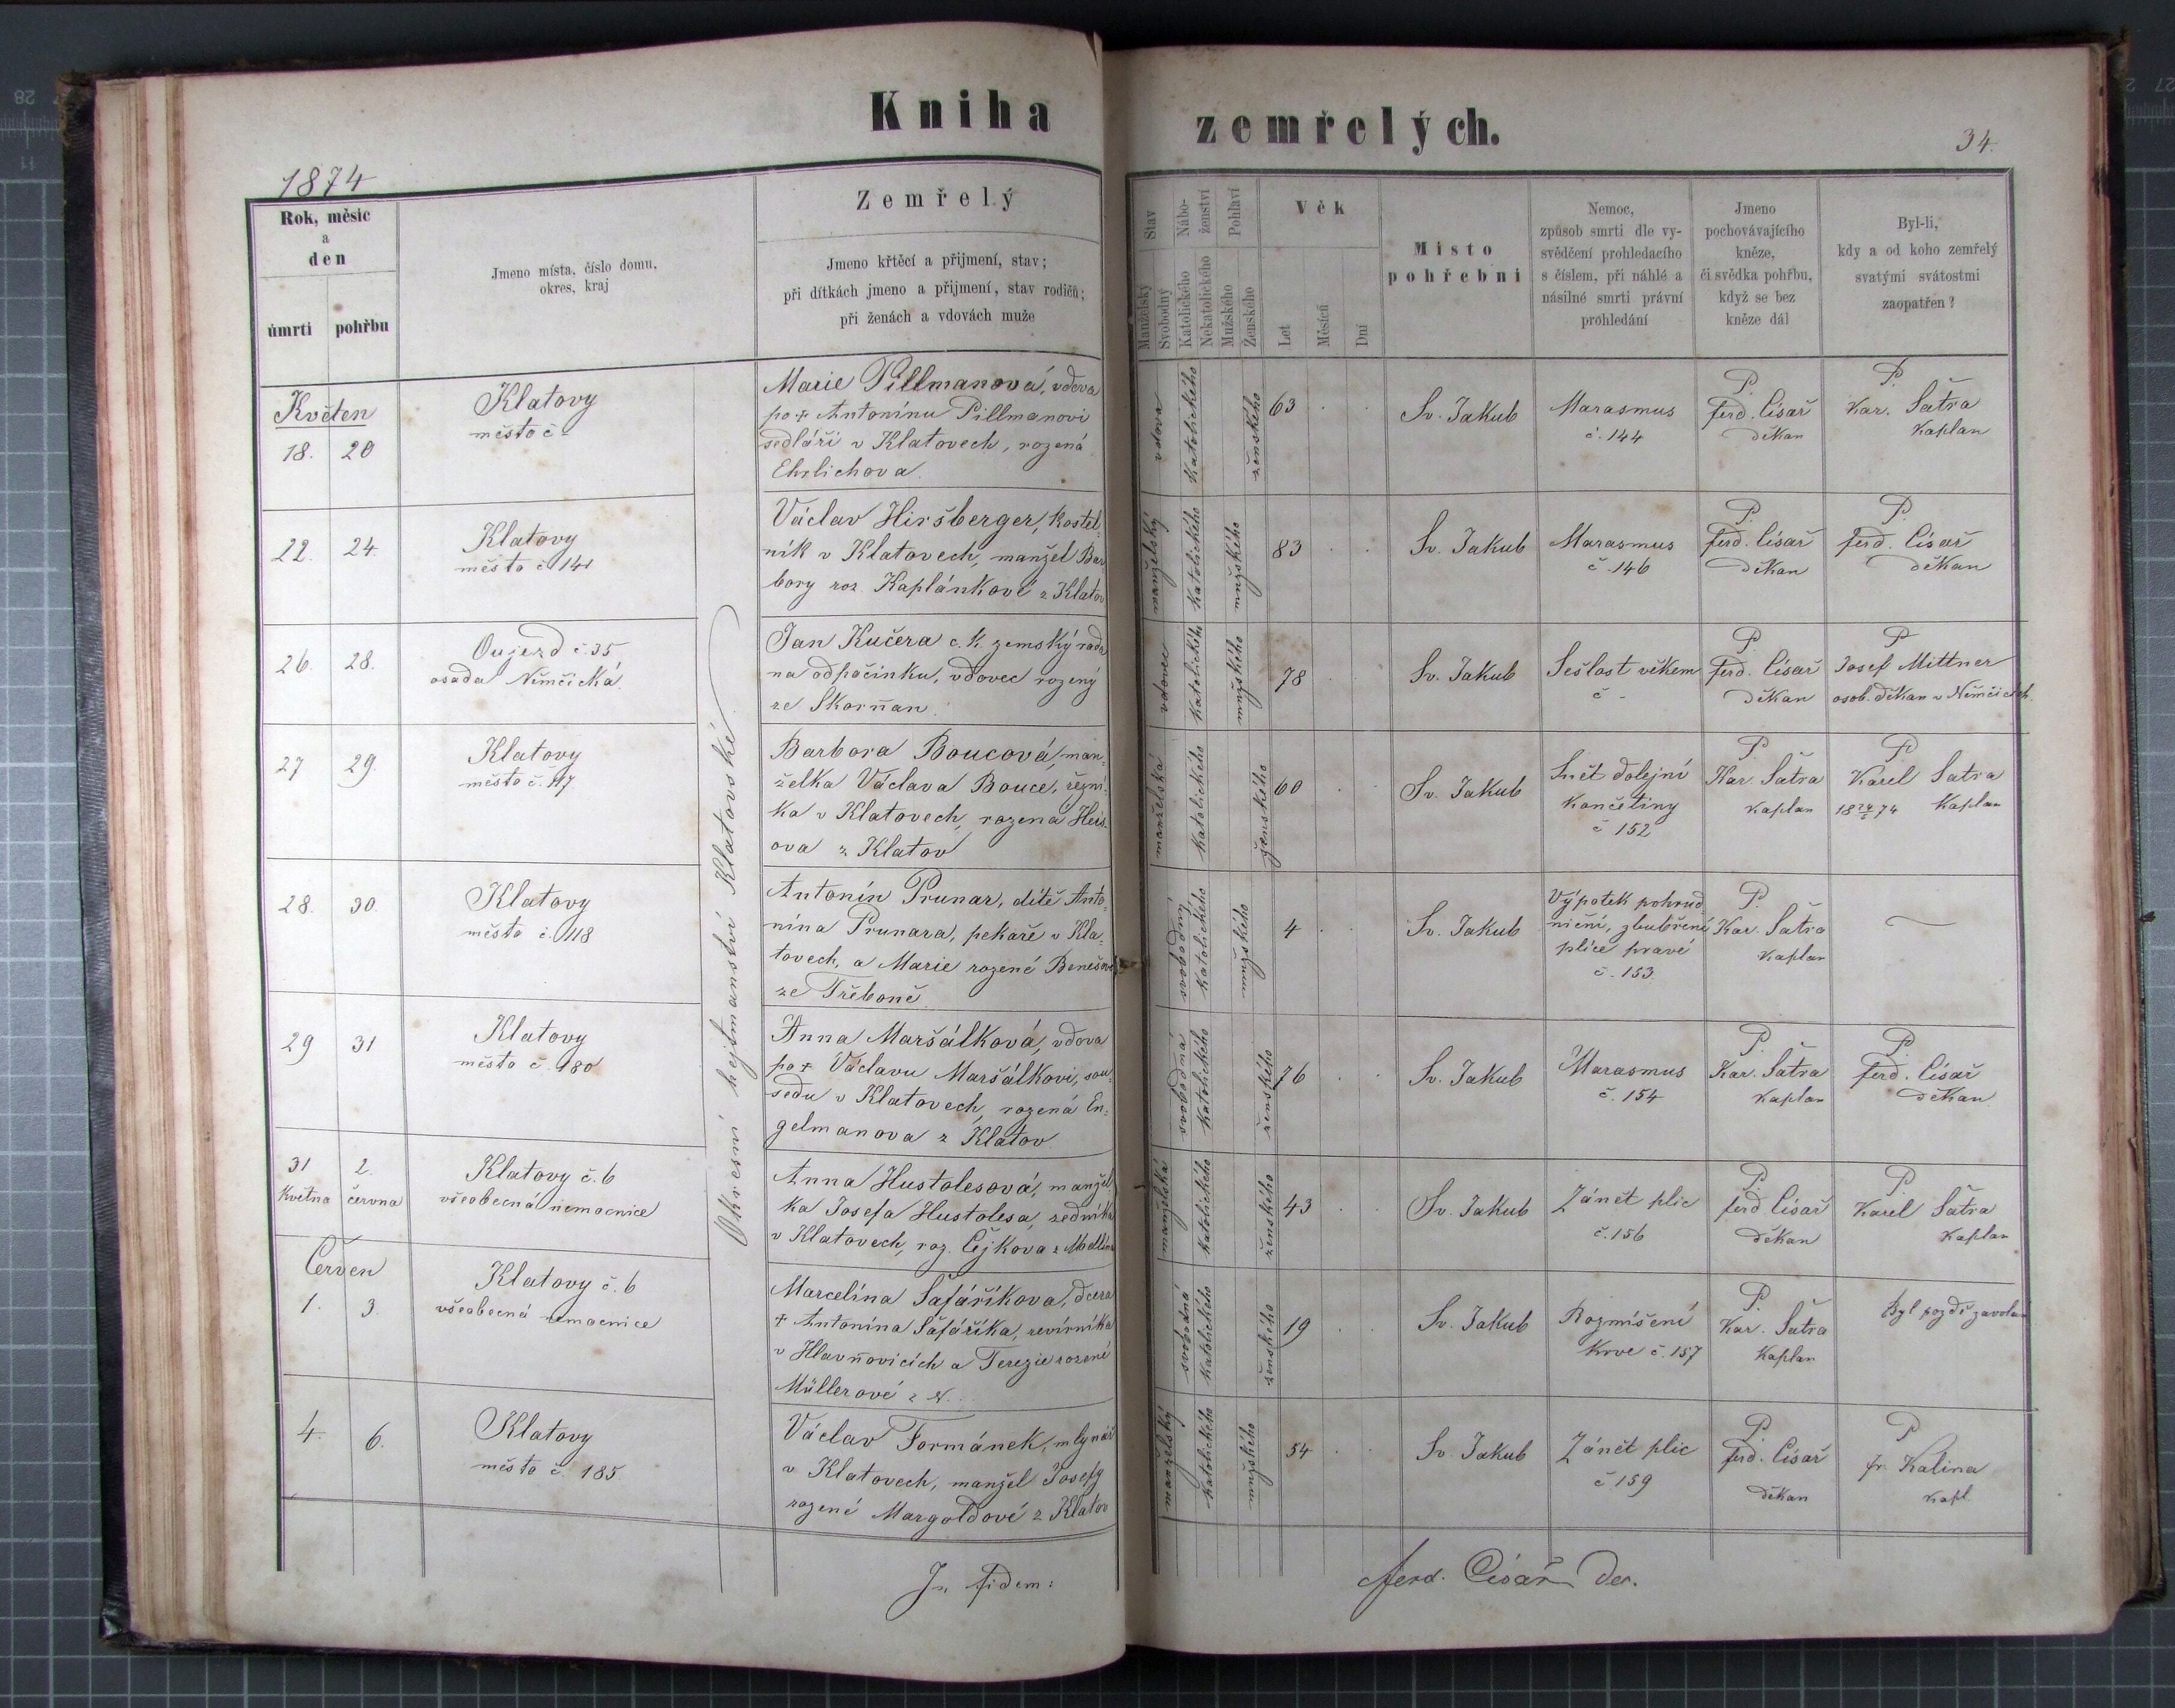 Kniha zemřelých.
34.
1874
Rok, měsíc
a
den
úmrtí
pohřbu
Jmeno místa, číslo domu,
okres, kraj
Zemřelý
Jmeno křtěcí a přijmení, stav;
při dítkách jmeno a přijmení, stav rodičů;
při ženách a vdovách muže
Stav
Manželský
Svobodný
Nábo-
ženství
Katolického
Nekatolického
Pohlaví
Mužského
Ženského
Věk
Let
Měsíců
Dní
Místo
pohřební
Nemoc,
způsob smrti dle vy-
svědčení prohledacího
s číslem, při náhlé a
násilné smrti právní
prohledání
Jmeno
pochovávajícího
kněze,
či svědka pohřbu,
když se bez
kněze dál
Byl-li,
kdy a od koho zemřelý
svatými svátostmi
zaopatřen?
Okresní hejtmanství Klatovské
Květen
18. 20
Klatovy
město č -
Marie Pillmanová, vdova
po † Antonínu Pillmanovi
sedláři v Klatovech, rozená
Ehrlichova.
vdova
katolického
ženského
63
Sv. Jakub
Marasmus
č. 144
P.
ferd. Císař
děkan
P.
Kar. Šatra
kaplan
22. 24.
Klatovy
město č 141
Václav Hiršberger, kostel-
ník v Klatovech, manžel Bar
bory roz. Kaplánkové z Klatov
manželský
katolického
mužského
83
Sv. Jakub
Marasmus
č. 146
P.
ferd. Císař
děkan
P.
ferd. Císař
děkan
26. 28.
Oujezd č. 35
osada Němčická.
Jan Kučera c. k. zemský rada
na odpočinku, vdovec rozený
ze Skořnan.
vdovec
katolického
mužského
78
Sv. Jakub
Sešlost věkem
č -
P.
ferd. Císař
děkan
P.
Josef Mittner
osob. děkan v Němčicích
27 29.
Klatovy
město č. 117
Barbora Boucová, man-
želka Václava Bouce, řezní-
ka v Klatovech, rozená Heis-
ova z Klatov
manželská
katolického
ženského
60
Sv. Jakub
Snět dolejní
končetiny
č 152
P.
Kar. Šatra
kaplan
P.
Karel Šatra
18 24/5 74 kaplan
28. 30.
Klatovy
město č. 118
Antonín Prunar, dítě Anto-
nína Prunara, pekaře v Kla-
tovech, a Marie rozené Benešové
ze Třeboně.
svobodný
katolického
mužského
4
Sv. Jakub
Výpotek pohrud
niční, zbubření
plíce pravé
č. 153.
P.
Kar. Šatra
kaplan
—
29 31
Klatovy
město č. 180
Anna Maršálková, vdova
po † Václavu Maršálkovi, sou-
sedu v Klatovech, rozená En-
gelmanova z Klatov
svobodná
katolického
ženského
76
Sv. Jakub
Marasmus
č. 154
P.
Kar. Šatra
kaplan
P.
ferd. Císař
děkan
31 2.
května června
Klatovy č. 6
všeobecná nemocnice
Anna Hustolesová, manžel
ka Josefa Hustolesa, zedníka
v Klatovech, roz. Čejkova z
manželská
katolického
ženského
43
Sv. Jakub
Zánět plic
č. 156
P.
ferd. Císař
děkan
P.
Karel Šatra
kaplan
Červen
1. 3.
Klatovy č. 6
všeobecná nemocnice
Marcelina Šafáříkova, dcera
† Antonína Šafáříka, revírníka
v Hlavňovicích a Terezie rozené
Müllerové z N..
svobodná
katolického
ženského
19
Sv. Jakub
Rozmíšení
krve č. 157
P.
Kar. Šatra
kaplan
Byl pozdě zavolán
4. 6.
Klatovy
město č. 185
Václav Formánek, mlynář
v Klatovech, manžel Josefy
rozené Margoldové z Klatov
manželský
katolického
mužského
54
Sv. Jakub
Zánět plic
č 159
P.
ferd. Císař
děkan
P
fr. Kalina
kapl.
In fidem:
Ferd. Císař Dec.